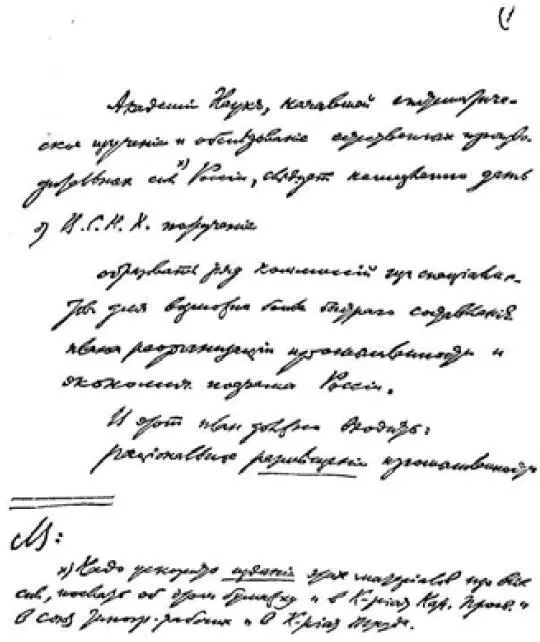 Академии Наук, начавшей систематиче-
ское изучение и обследование естественных произво-
дительных сил x) России, следует немедленно дать
от В.С.Н.Х. поручение
образовать ряд комиссий из специалис-
тов для возможно более быстрого составления
плана реорганизации промышленности и
экономич. подъема России.
В этот план должно входить:
рациональное размещение промышленности
x) Надо ускорить издание этих материалов изо всех
сил, послать об этом бумажку и в К-риат Нар. Просв. и
в союз типогр. рабочих и в К-риат Труда.